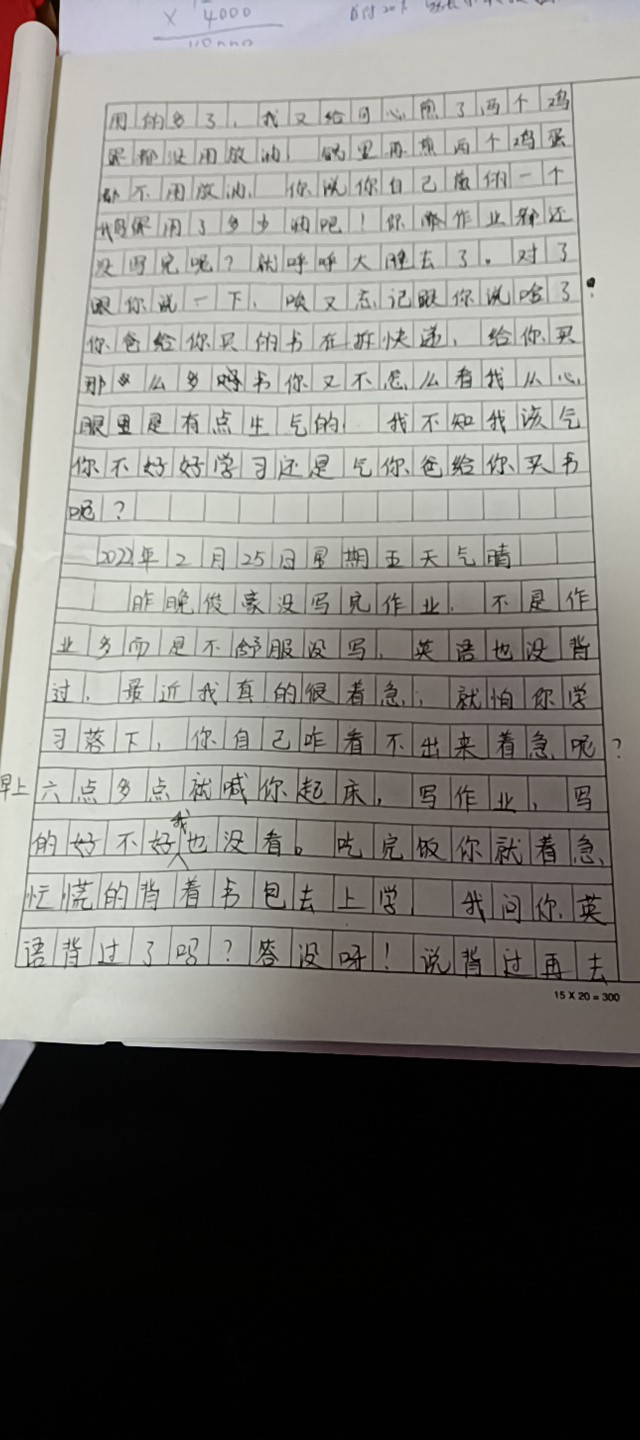 × 4000
用的多了，我又给可心煎了两个鸡
蛋都没用放油，锅里再煎两个鸡蛋
都不用放油，你说你自己做的一个
我得用了多少油吧！你嘛作业都还
没写完呢？就呼呼大睡去了。对了
跟你说一下，唉又忘记跟你说啥了
你爸给你买的书在拆快递，给你买
那么多书你又不怎么看我从心
眼里是有点生气的 我不知我该气
你不好好学习还是气你爸给你买书
呢？
2022年2月25日星期五天气晴
昨晚俊豪没写完作业，不是作
业多而是不舒服没写，英语也没背
过，最近我真的很着急，就怕你学
习落下，你自己咋看不出来着急呢？
早上六点多点就喊你起床，写作业，写
的好不好我也没看。吃完饭你就着急
忙慌的背着书包去上学，我问你英
语背过了吗？答没呀！说背过再去
15 X 20 = 300